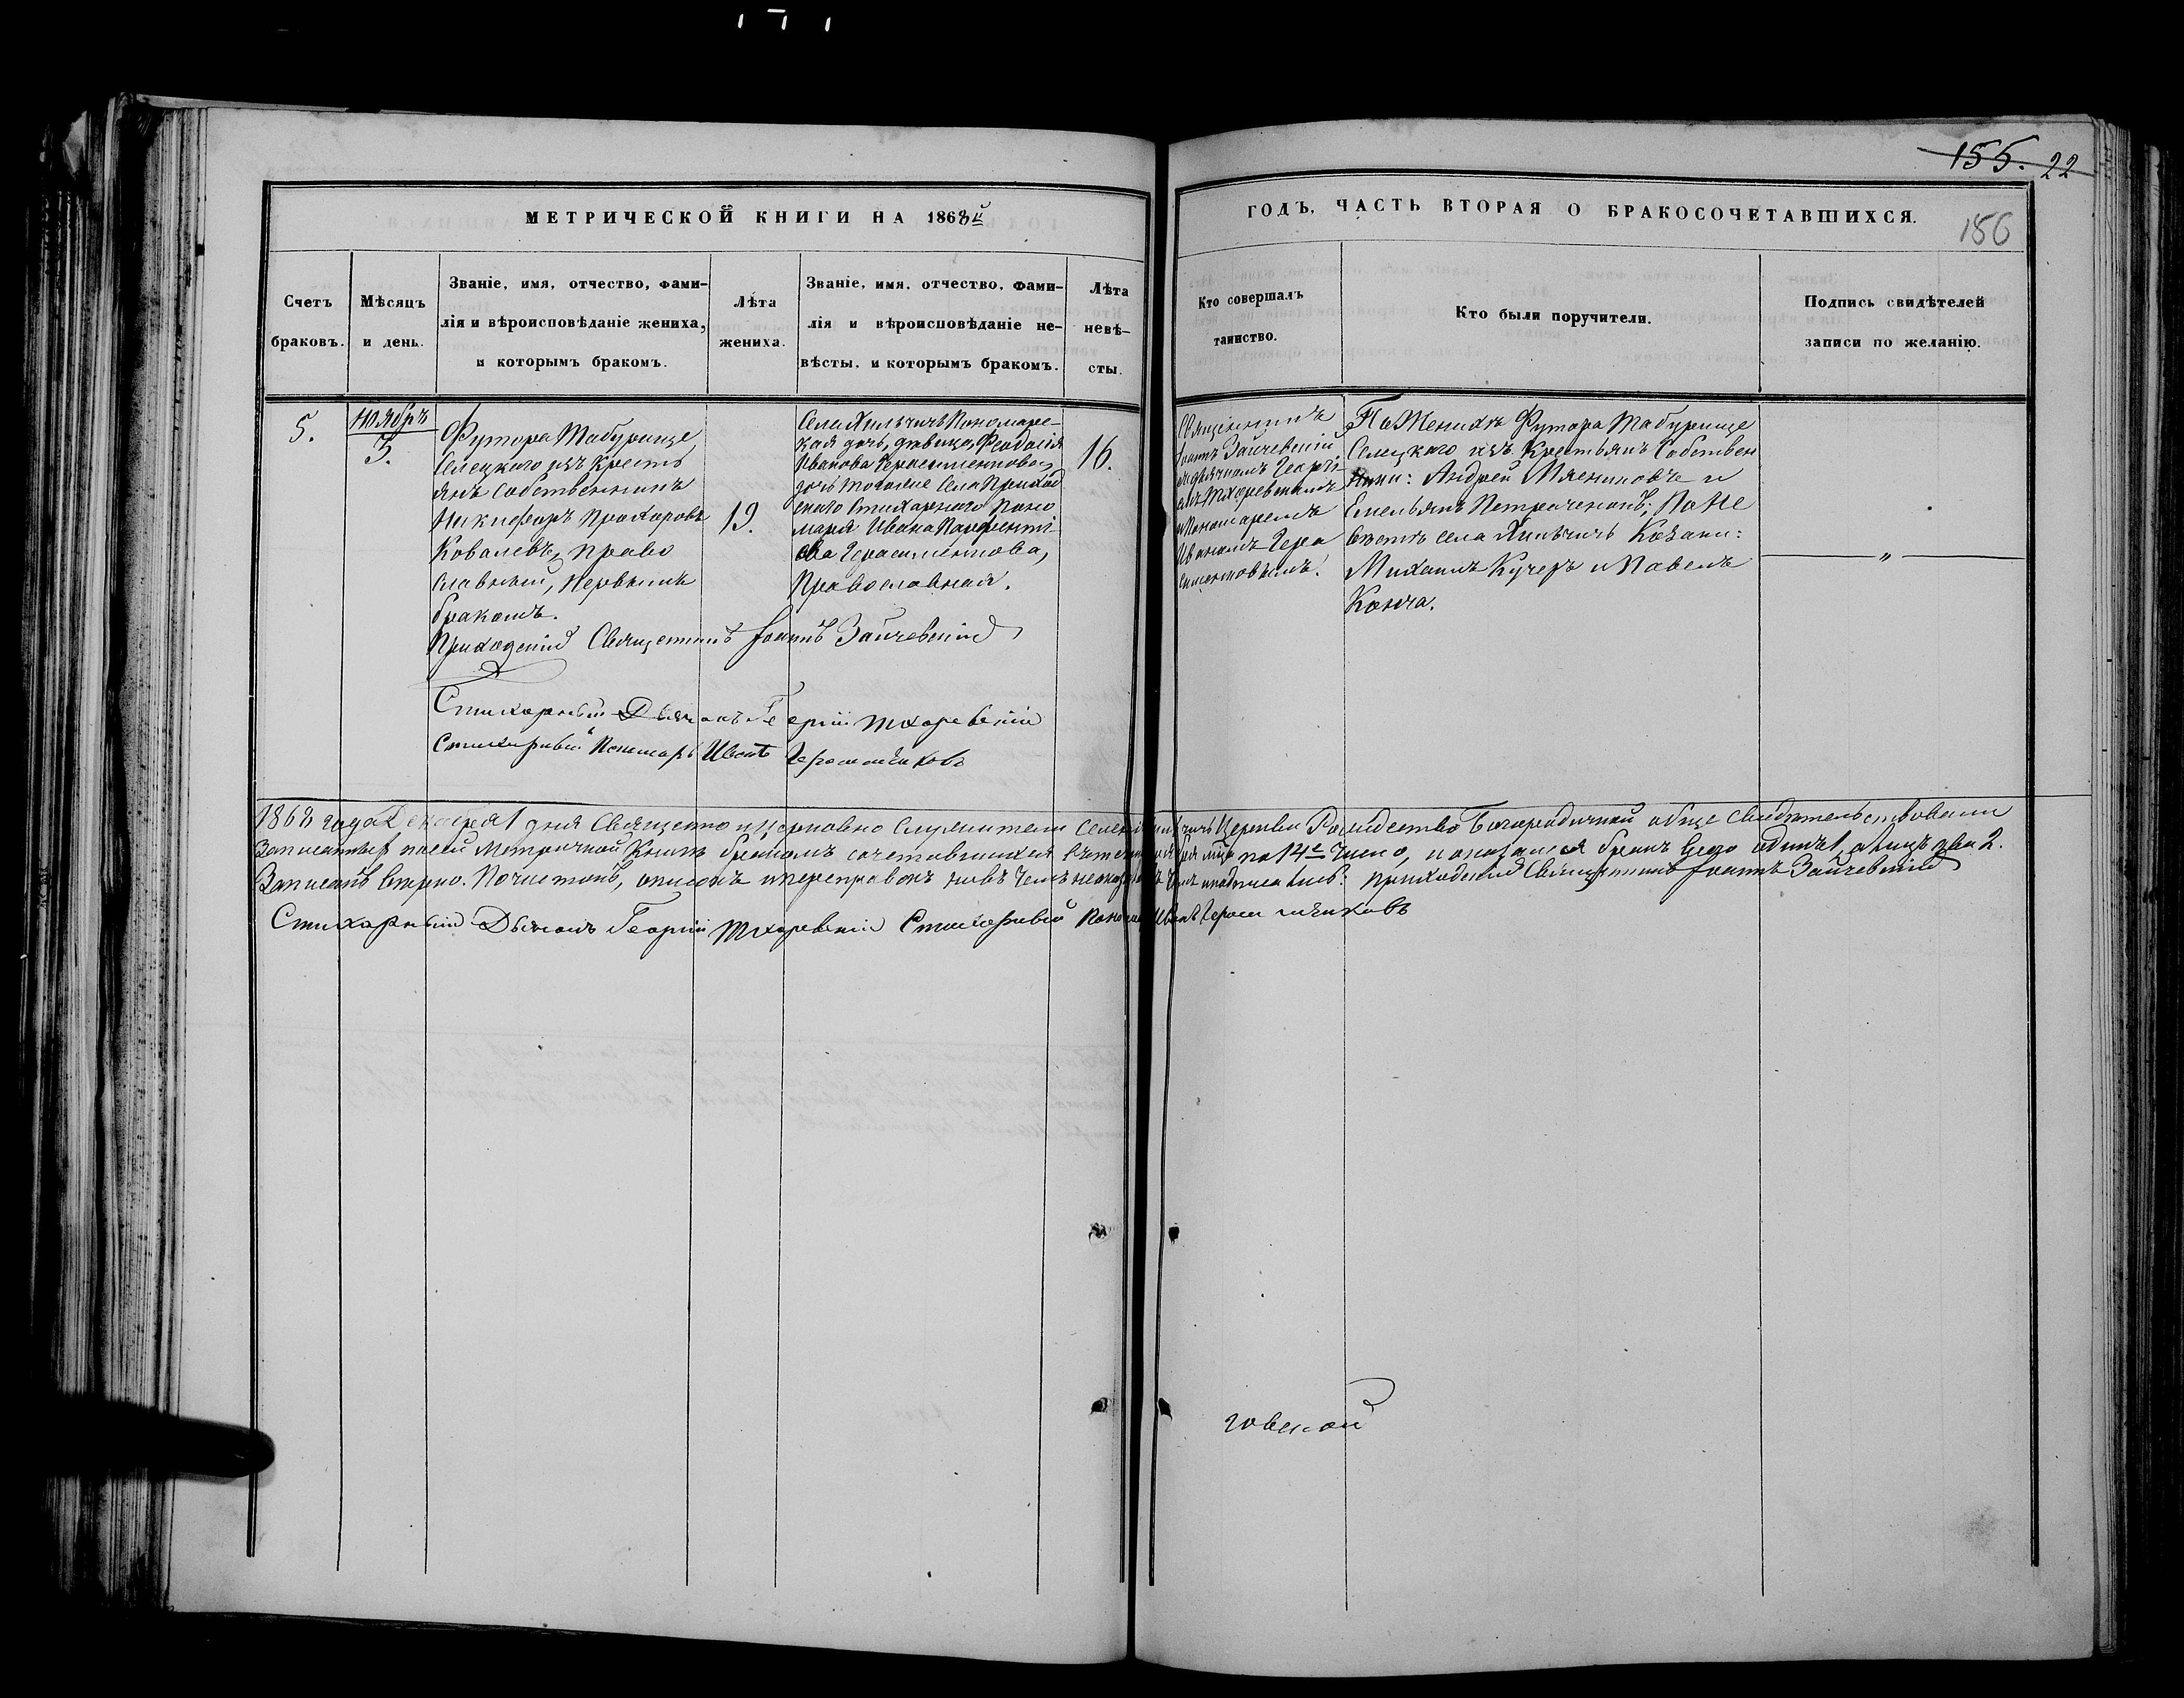 155. 22
156
МЕТРИЧЕСКОЙ КНИГИ НА 1868й
ГОДЪ, ЧАСТЬ ВТОРАЯ О БРАКОСОЧЕТАВШИХСЯ.
Счетъ
браковъ.
Мѣсяцъ
и день.
Званіе, имя, отчество, фами-
лія и вѣроисповѣданіе жениха,
и которымъ бракомъ.
Лѣта
жениха.
Званіе, имя, отчество, фами-
лія и вѣроисповѣданіе не-
вѣсты, и которымъ бракомъ.
Лѣта
невѣ-
сты.
Кто совершалъ
таинство.
Кто были поручители.
Подпись свидѣтелей
записи по желанію.
5.
Ноябрь
3.
Футора Табурище
Селецкого изъ Кресть
янъ Собственникъ
Никифоръ Прохоровъ
Ковалевъ, право
славный, первымъ
бракомъ.
19.
Села Хильчичь Пономаре-
ская дочь, дѣвица, Феодосія
Иванова Герасименкова,
дочь тогоже Села Приход
скаго Стихарного Поно
маря Ивана Парфенті-
ева Герасименкова,
Православная.
16.
Священникъ
Іоаннъ Зайчевскій
съ дьячкомъ Георгі-
емъ Тхоревскимъ
и Пономаремъ
Иваномъ Гера
сименковымъ.
По Женихѣ Футора Табурище
Селецкаго изъ Крестьянъ Собствен
ники: Андрей Мяениковъ и
Емельянъ Петраченокъ; По Не
вѣстѣ села Хильчичь Козаки:
Михаилъ Кучеръ и Павелъ
Конча.
"
Приходскій Священникъ Іоаннъ Зайчевскій
Стихарный Дьячокъ Георгій Тхоревскій
Стихарный Пономарь Иванъ Герасименковъ
1868 года Декабря 1 дня Священно и Церковно Служители Села Хильчичь Церкви Рождество Богородичной обще Свидѣтельствовали
Записанныхъ по сей Метричной Книгѣ бракомъ сочетавшихся въ по 1е Число, и оказался бракъ Всего одинъ 1, а Лицъ два 2.
Записанъ вѣрно. Почистокъ, описокъ и переправокъ ни въ Чемъ приходскій Священникъ Іоаннъ Зайчевскій
Стихарный Дьячокъ Георгій Тхоревскій Стихарный Пономарь Иванъ Герасименковъ
говской